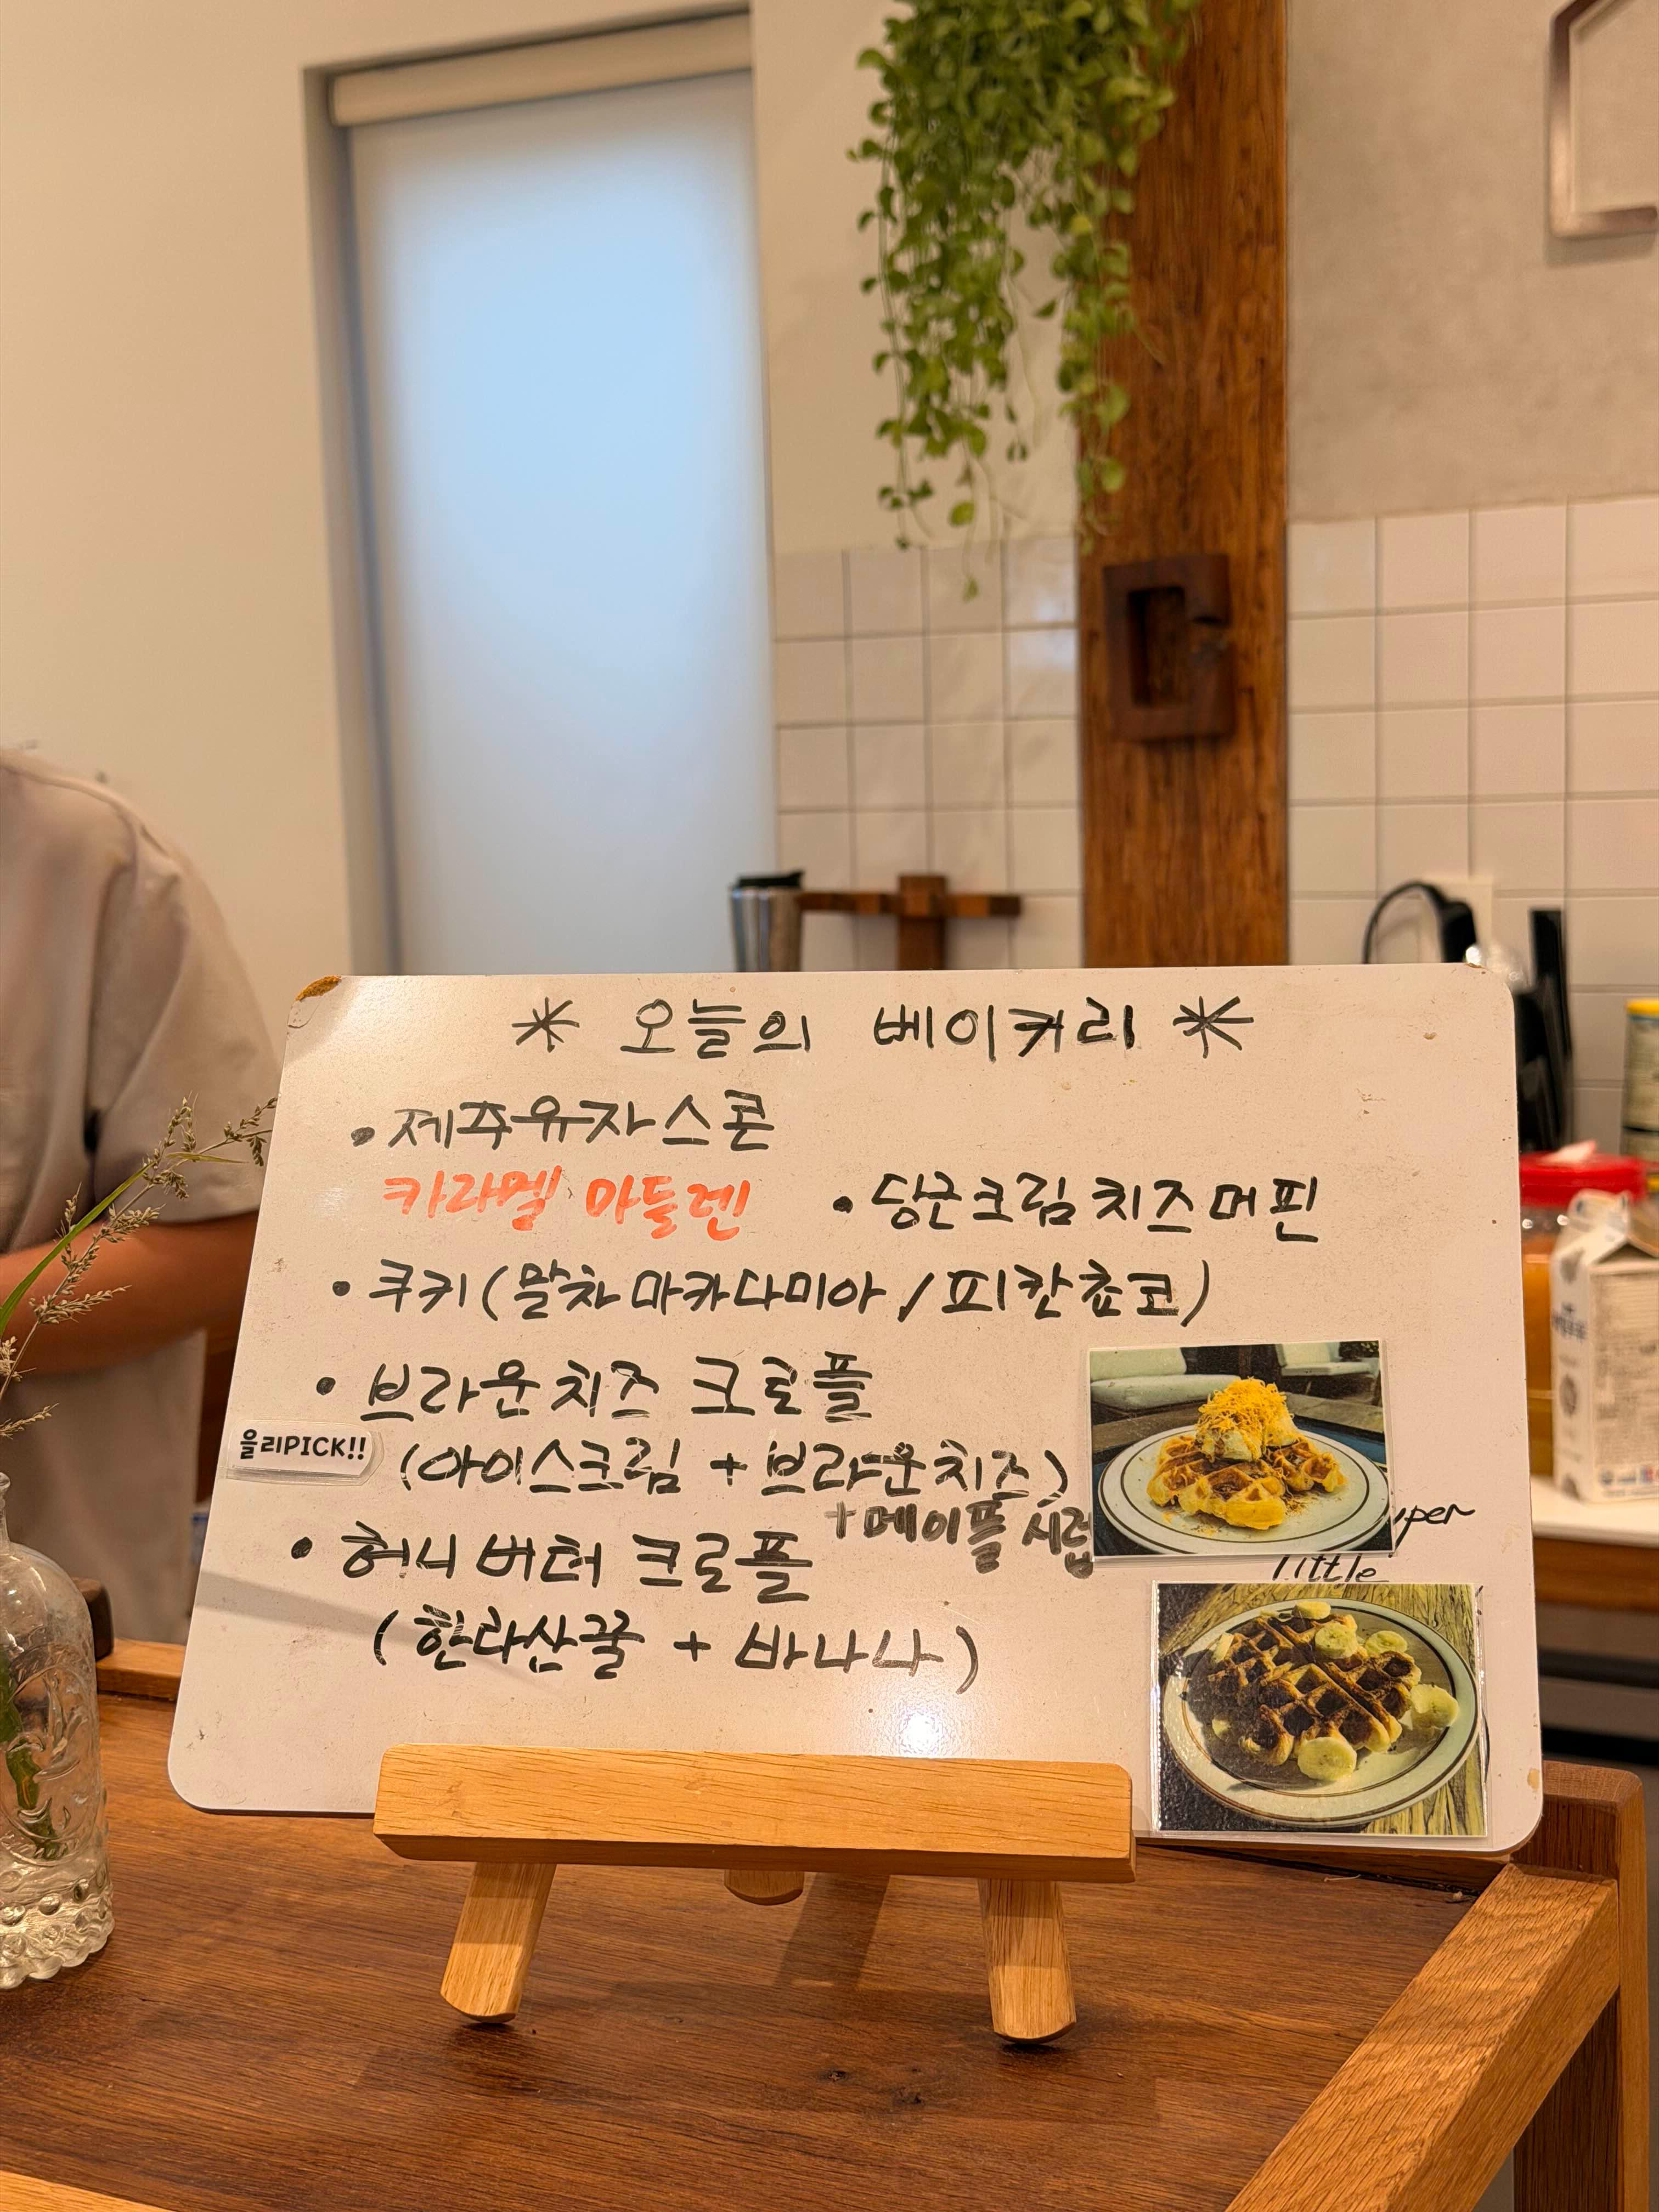 * 오늘의 베이커리 *
• 제주유자스콘
카라멜 마들렌 • 당근크림치즈머핀
• 쿠키(말차마카다미아 / 피칸쵸코)
• 브라운치즈 크로플
을리PICK!! (아이스크림 + 브라운치즈)
+메이플 시럽
• 허니버터 크로플
(한라산꿀 + 바나나)
little